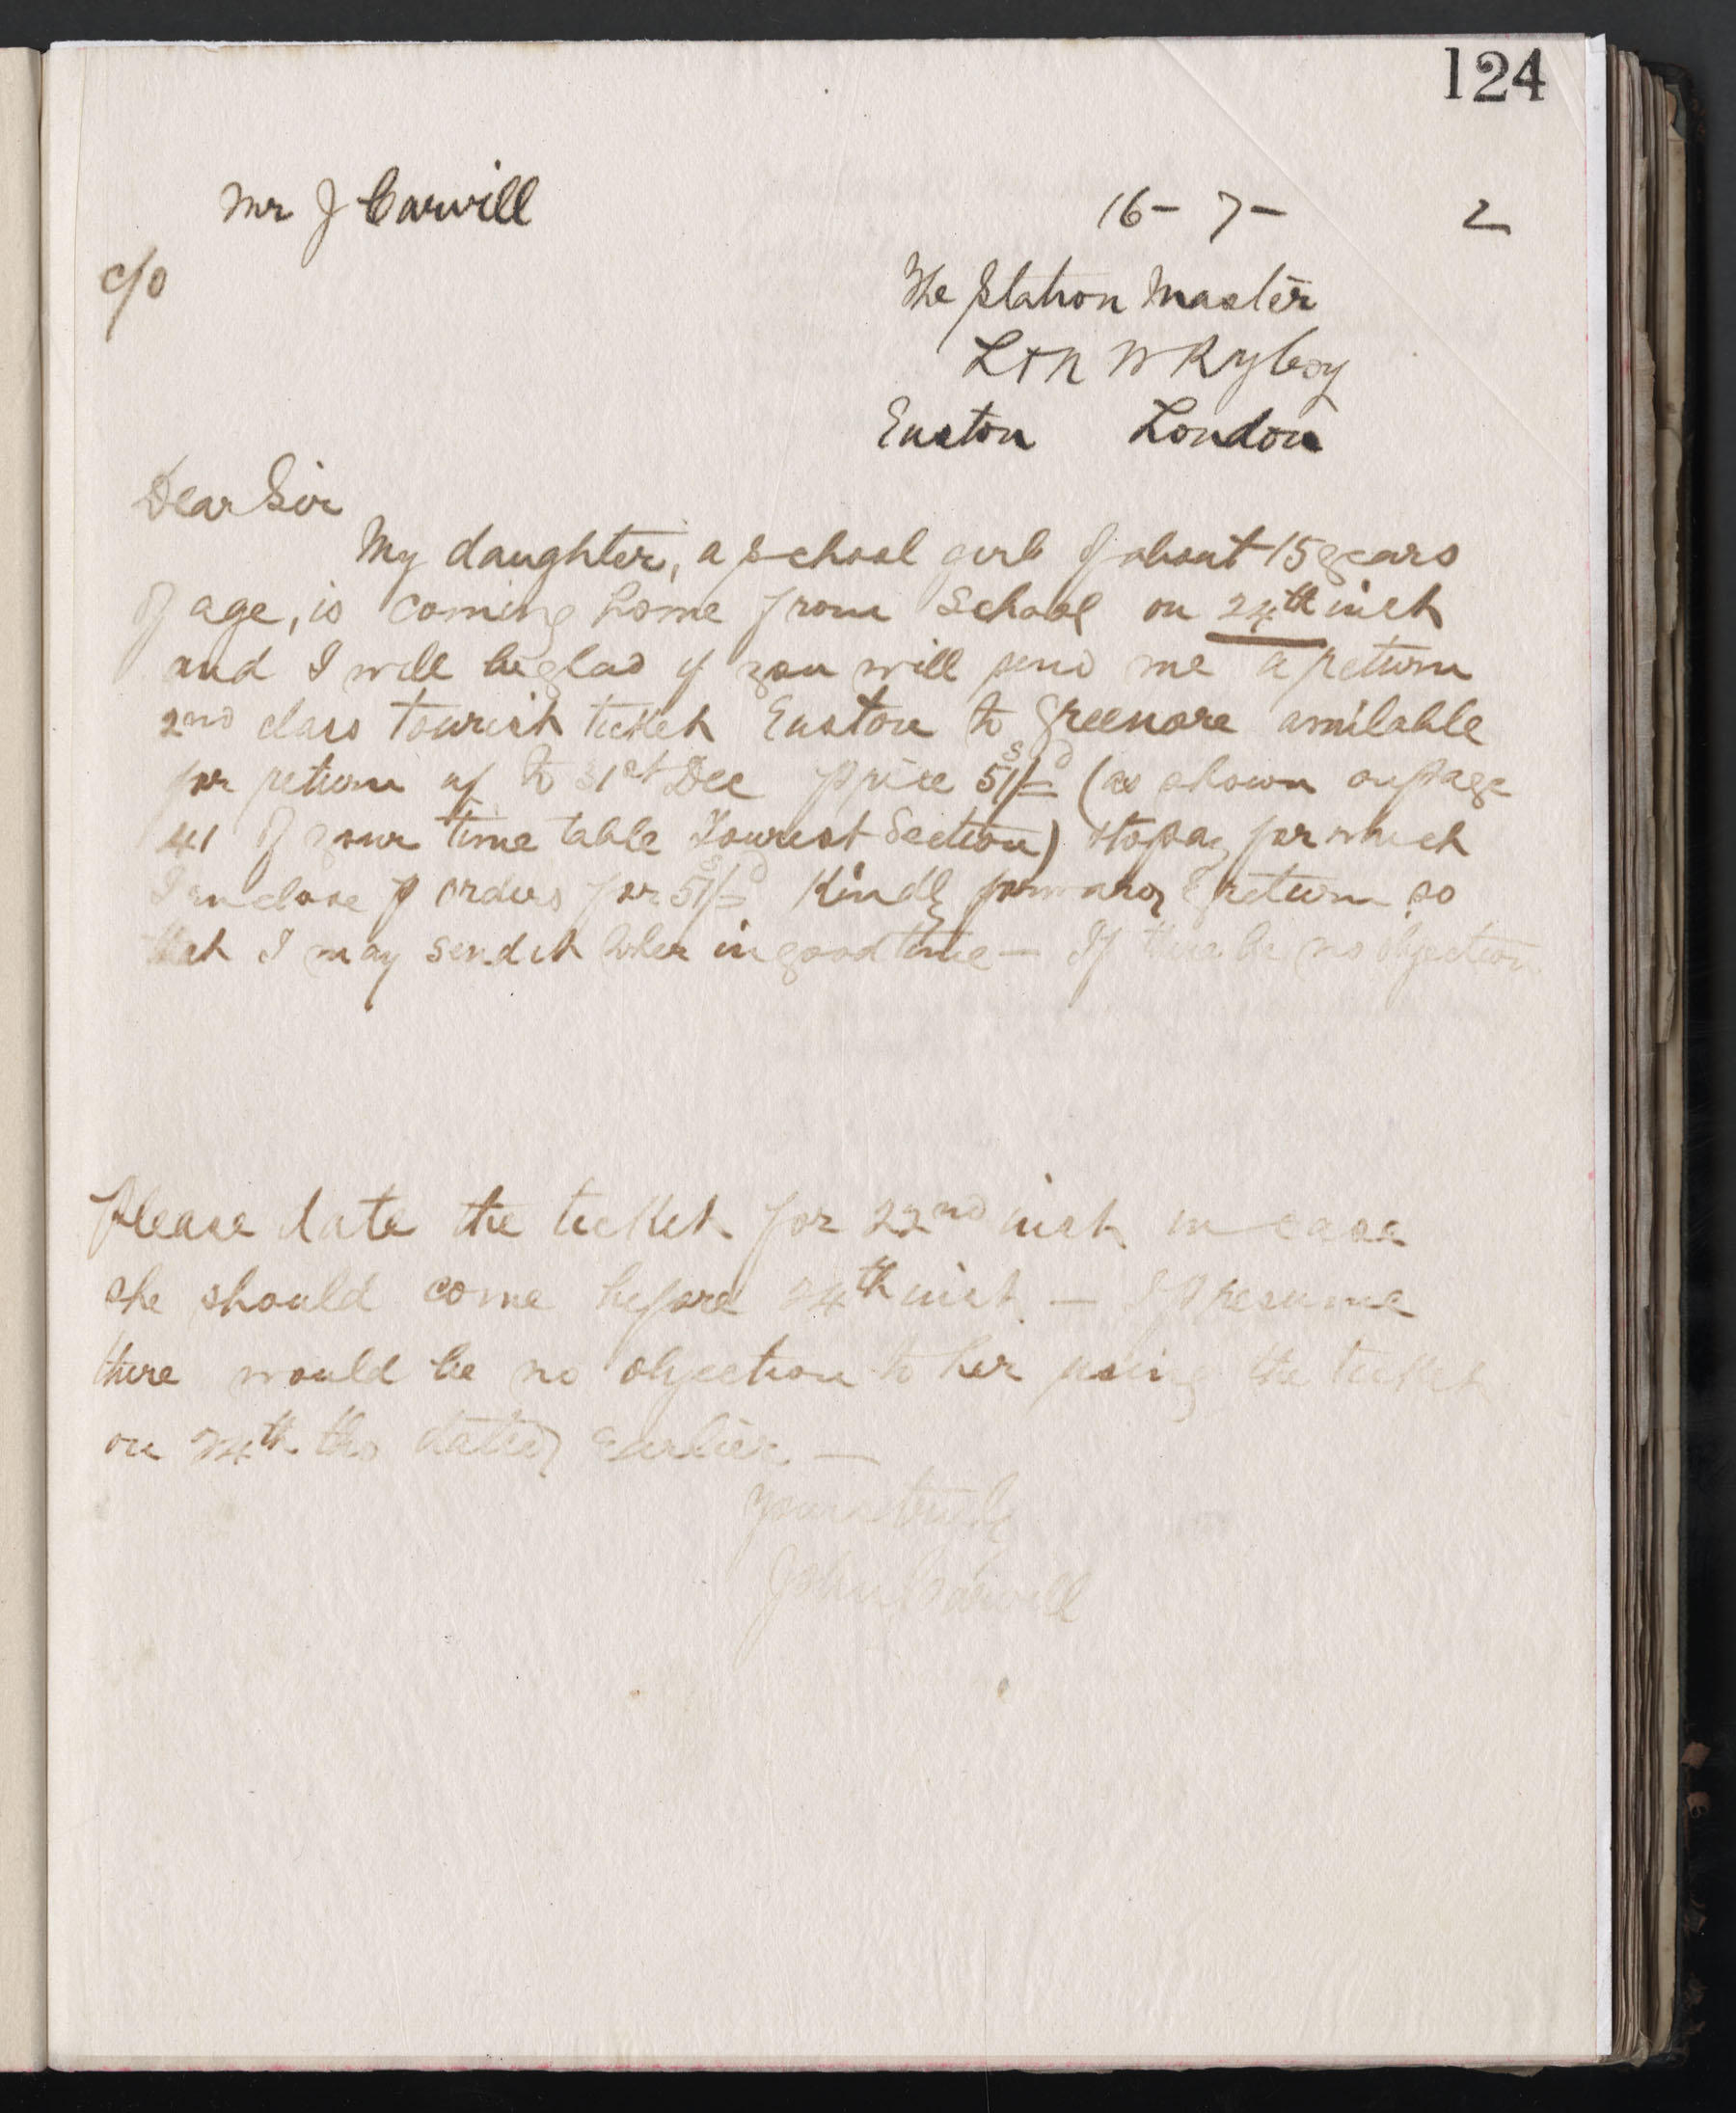 124
Mr J Carvill 16-7- 2
c/o
The Station Master
L & N W Ry Coy
Euston London
Dear Sir
My daughter, a school girl of about 15 years
of age, is coming home from School on 24th inst
and I will be glad if you will send me a return
2nd class tourist ticket Euston to Greenore available
for return up to 31st Dec price 51s/=d (as shown on page
41 of your time table Tourist Section) for which
I enclose p orders for 51s/=d Kindly forward return so
that I may send it to her in good time — If there be no objection
Please date the ticket for 22nd inst in case
she should come before 24th inst. — I presume
there would be no objection to her using the ticket
on 24th tho dated earlier —
Yours truly
John Carvill